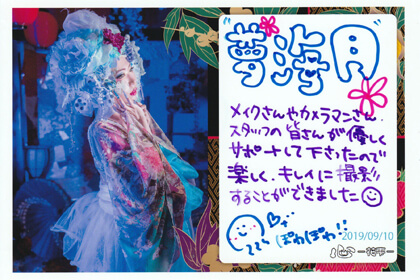 "夢海月"
メイクさんやカメラマンさん、
スタッフの皆さんが優しく
サポートして下さったので
楽しく、キレイに撮影
することができました
ぽわぽわ!!
2019/09/10
心 -花雫-